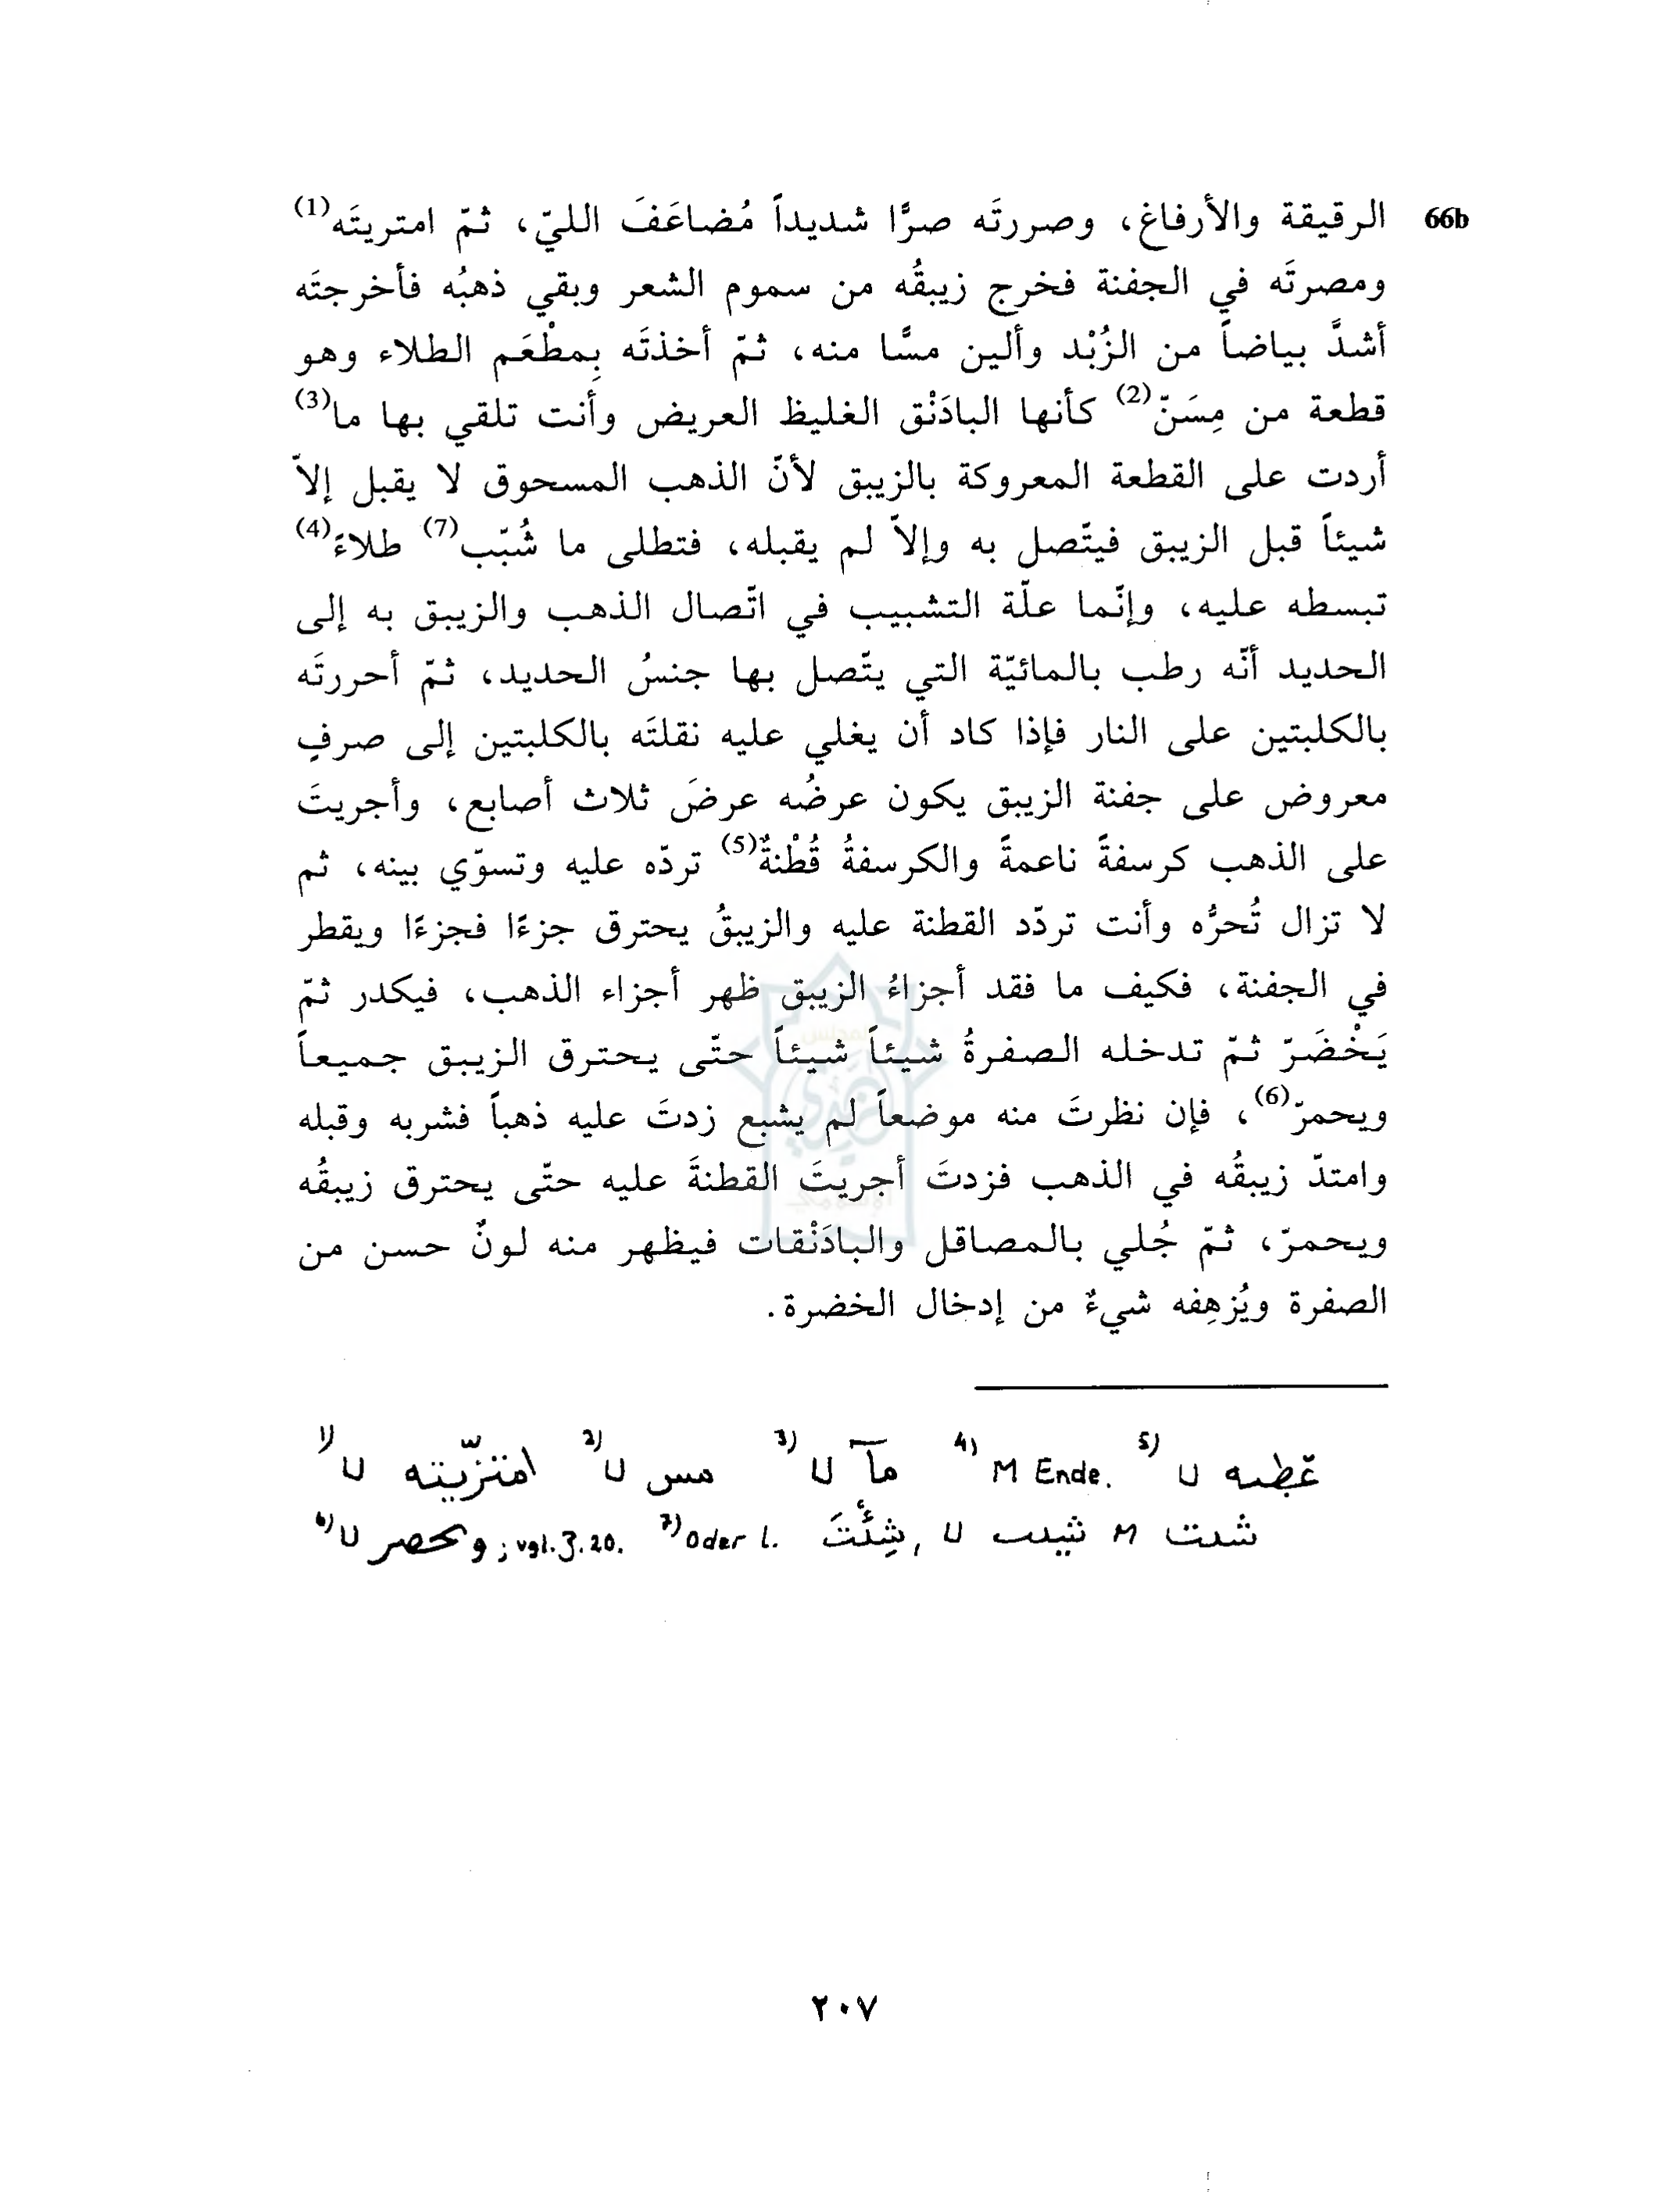 66b الرقيقة والأرفاغ، وصررتَه صرًّا شديداً مُضاعَفَ الليّ، ثمّ امتريتَه(1)
ومصرتَه في الجفنة فخرج زيبقُه من سموم الشعر وبقي ذهبُه فأخرجتَه
أشدَّ بياضاً من الزُبْد وألين مسًّا منه، ثمّ أخذتَه بِمطْعَم الطلاء وهو
قطعة من مِسَنّ(2) كأنها الباذَنْق الغليظ العريض وأنت تلقي بها ما(3)
أردت على القطعة المعروكة بالزيبق لأنّ الذهب المسحوق لا يقبل إلاّ
شيئاً قبل الزيبق فيتّصل به وإلاّ لم يقبله، فتطلى ما شُبّب(7) طلاءً(4)
تبسطه عليه، وإنّما علّة التشبيب في اتّصال الذهب والزيبق به إلى
الحديد أنّه رطب بالمائيّة التي يتّصل بها جنسُ الحديد، ثمّ أحررتَه
بالكلبتين على النار فإذا كاد أن يغلي عليه نقلتَه بالكلبتين إلى صرفٍ
معروض على جفنة الزيبق يكون عرضُه عرضَ ثلاث أصابع، وأجريتَ
على الذهب كرسفةً ناعمةً والكرسفةُ قُطْنةٌ(5) تردّه عليه وتسوّي بينه، ثم
لا تزال تُحرُّه وأنت تردّد القطنة عليه والزيبقُ يحترق جزءًا فجزءًا ويقطر
في الجفنة، فكيف ما فقد أجزاءُ الزيبق ظهر أجزاء الذهب، فيكدر ثمّ
يَخْضَرّ ثمّ تدخله الصفرةُ شيئاً شيئاً حتّى يحترق الزيبق جميعاً
ويحمرّ(6)، فإن نظرتَ منه موضعاً لم يشبع زدتَ عليه ذهباً فشربه وقبله
وامتدّ زيبقُه في الذهب فزدتَ أجريتَ القطنةَ عليه حتّى يحترق زيبقُه
ويحمرّ، ثمّ جُلي بالمصاقل والباذَنْقات فيظهر منه لونٌ حسن من
الصفرة ويُزهِفه شيءٌ من إدخال الخضرة.
1) U امتزّيته 2) U مس 3) U مآ 4) M Ende. 5) U
6) U ; vgl. Z. 20. 7) Oder l. شِئْتَ, U M شدت
٢٠٧